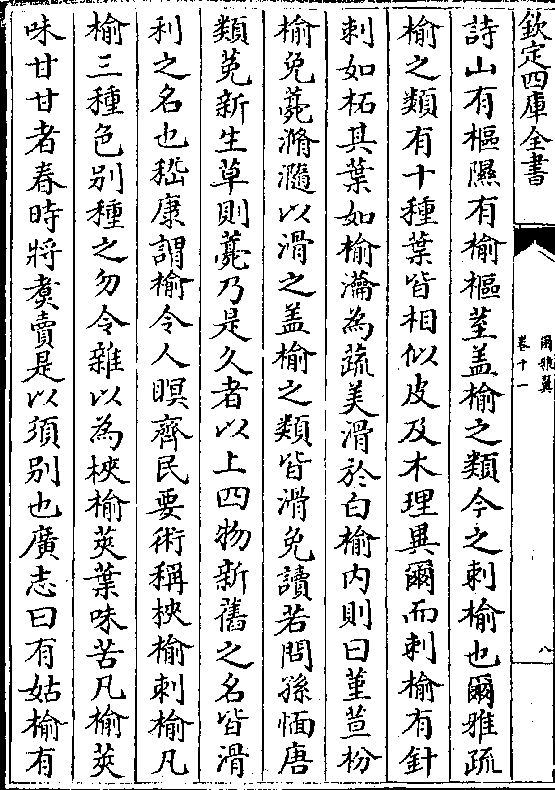 欽定四庫全書
爾雅翼
卷十一
八
詩山有樞隰有榆樞荎盖榆之類今之刺榆也爾雅疏
榆之類有十種葉皆相似皮及木理異爾而刺榆有針
刺如柘其葉如榆瀹為蔬美滑於白榆内則曰堇荁枌
榆免薧滫瀡以滑之盖榆之類皆滑免讀若問孫愐唐
類莬新生草則薧乃是久者以上四物新舊之名皆滑
利之名也嵇康謂榆令人瞑齊民要術稱柍榆刺榆凡
榆三種色别種之勿令雜以為梜榆莢葉味苦凡榆莢
味甘甘者春時將煑賣是以須别也廣志曰有姑榆有